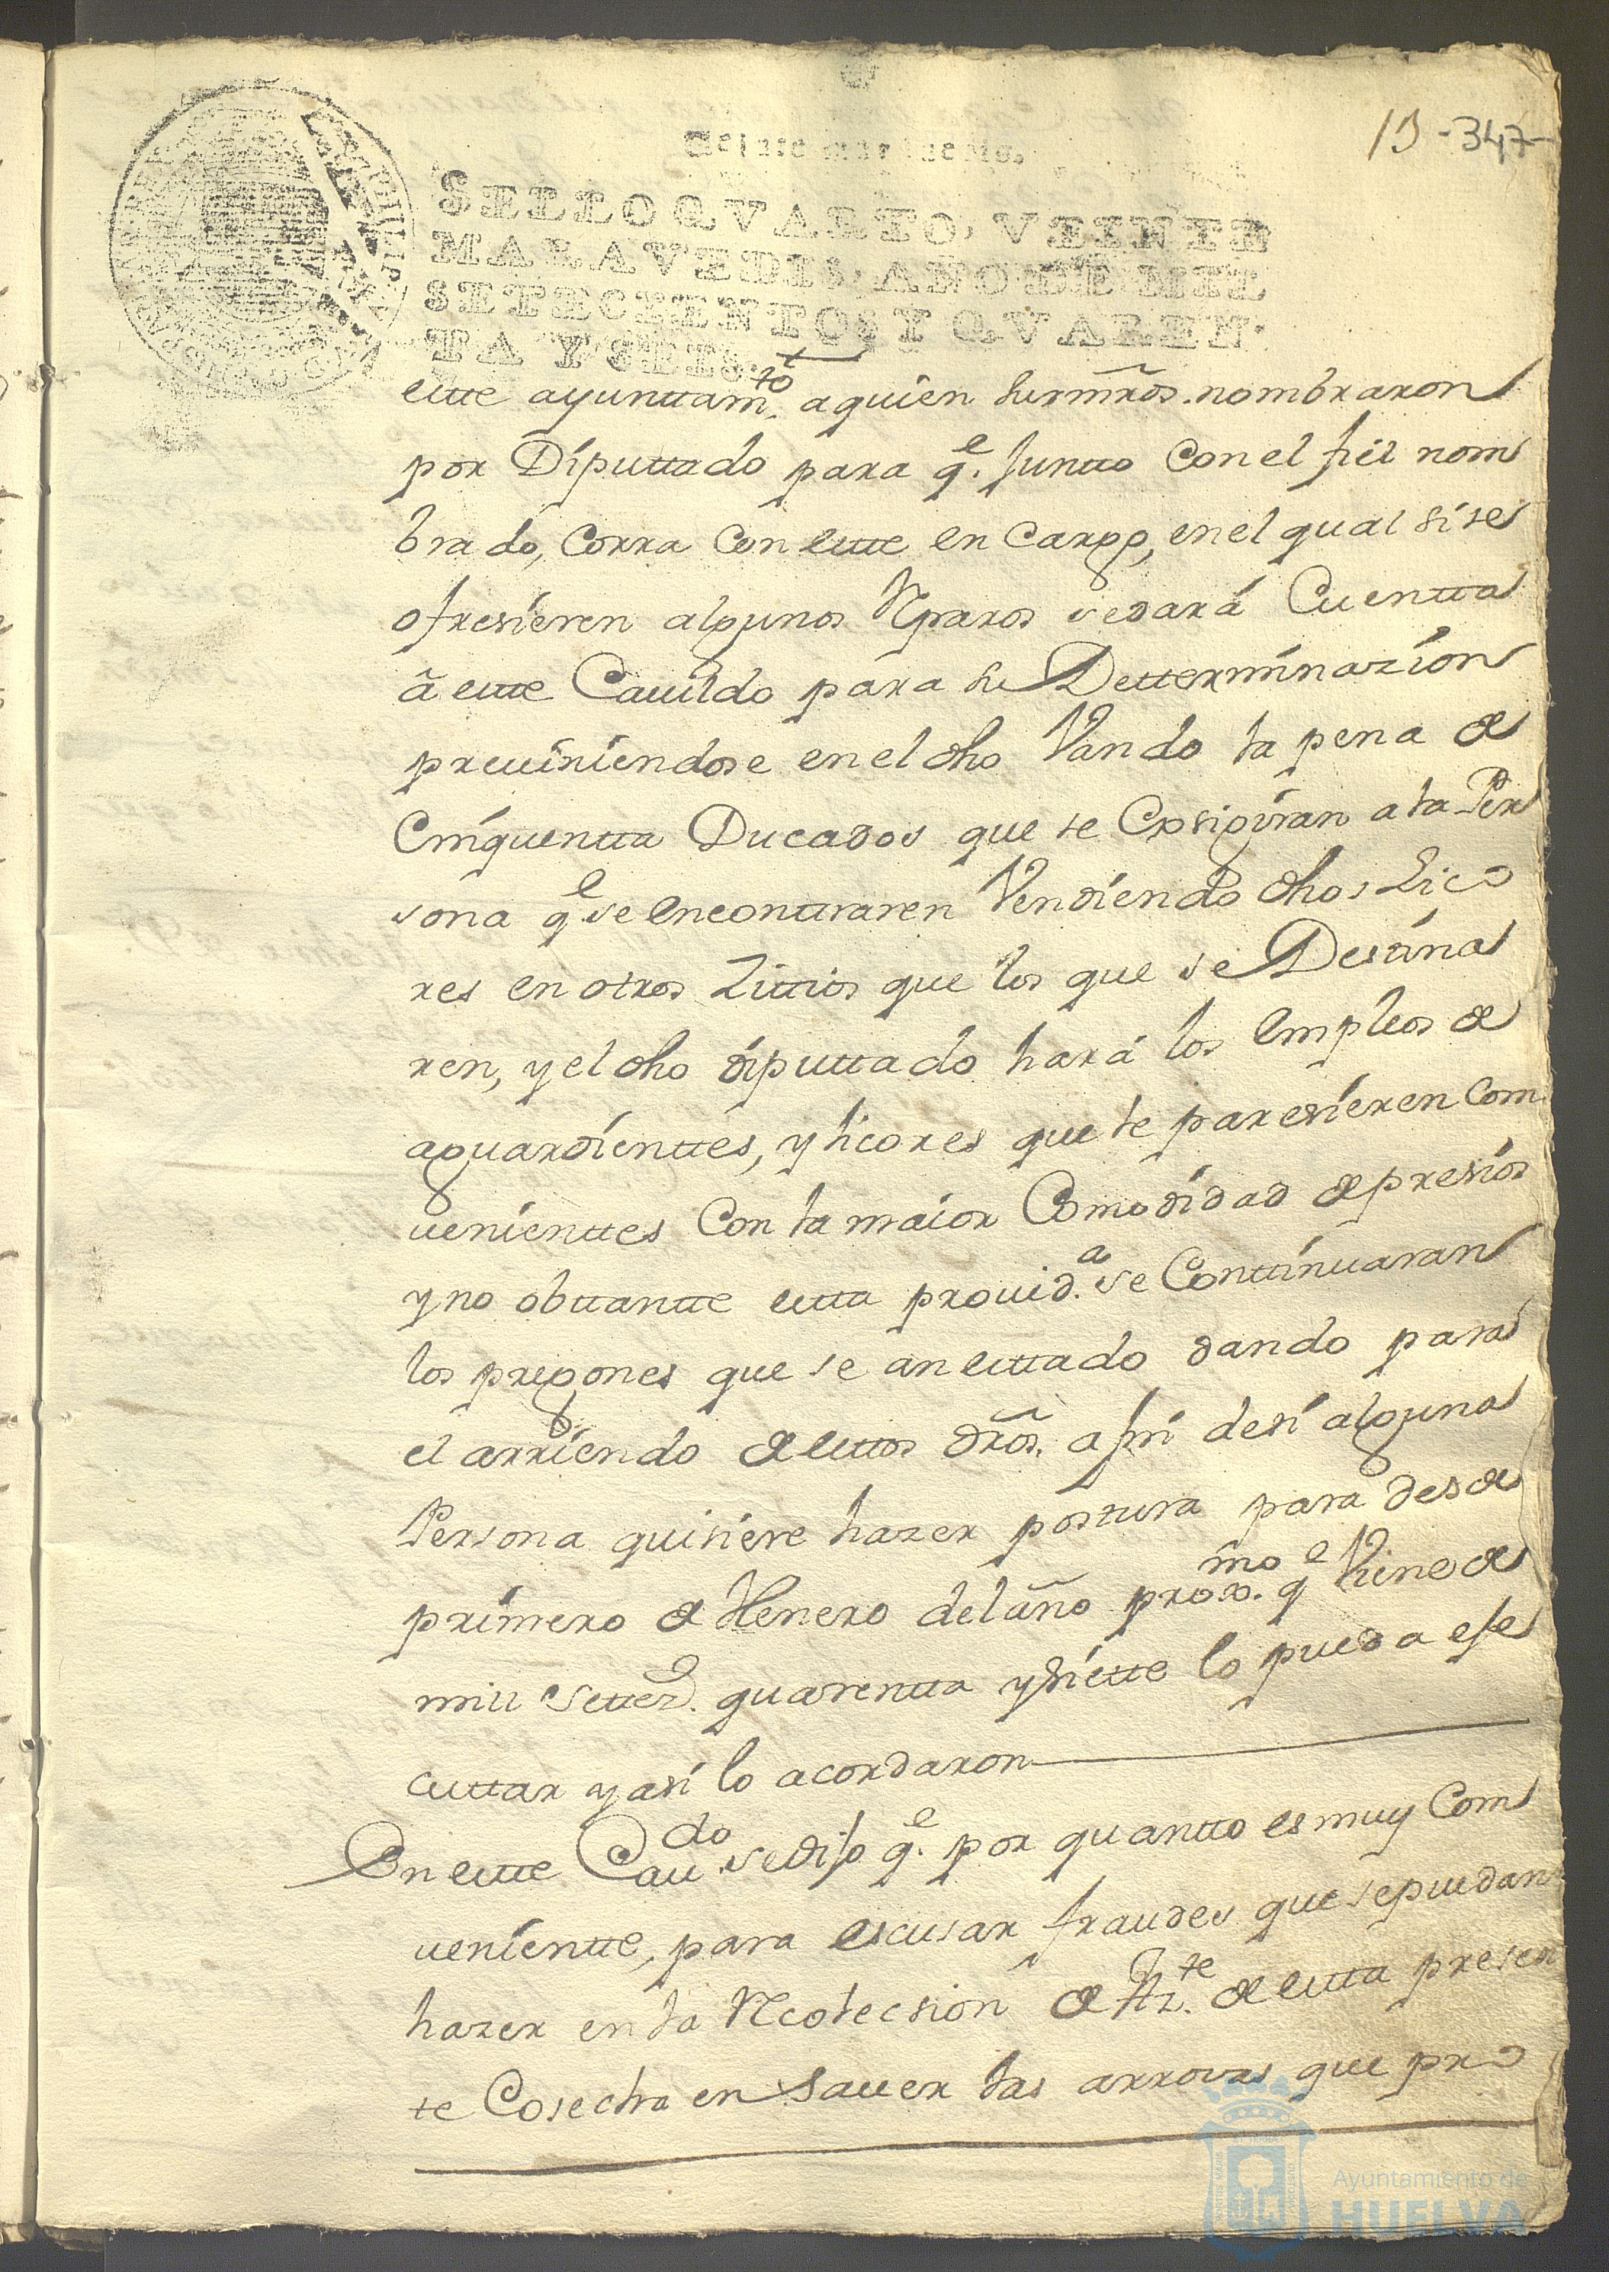 13 -347-
Veinte maravedis.
SELLO QVARTO, VEINTE
MARAVEDIS, AÑO DE MIL
SETECIENTOS Y QVAREN-
TA Y SEIS.
este ayunttamto. a quien sus mrds. nombraron
por Diputtado para qe. Juntto Con el fiel nom
brado, Corra Con este en Cargo, en el qual si se
ofresieren algunos Reparos se dará Cuentta
â este Cavildo para su Detterminazion
previniendose en el dho Vando la pena de
Cinquentta Ducados que se Exsigiran a la Per
sona qe se enconttraren Vendiendo dhos Lico
res en otros Zittios que los que se Destina
ren, y el dho diputtado hará los Empleos de
aguardienttes, y licores que le paresieren Com
venienttes Con la maior Comodidad de presios
y no obstantte esta provida. se Conttinuaran
los pregones que se an esttado dando para
el arriendo de esttos dros. assi de si alguna
Persona quisiere hazer postura para desde
primero de Henero del año proxmo. qe Viene de
mill Settez. quarentta y siette lo pueda ese
cuttar y asi lo acordaron
En este Cavdo se dijo qe. por quantto es muy Com
venientte, para escusar fraudes que se puedan
hazer en la Recolecsion de Azte. de esta presen
te Cosecha en saver las arrovas que pro
Ayuntamiento de
HUELVA